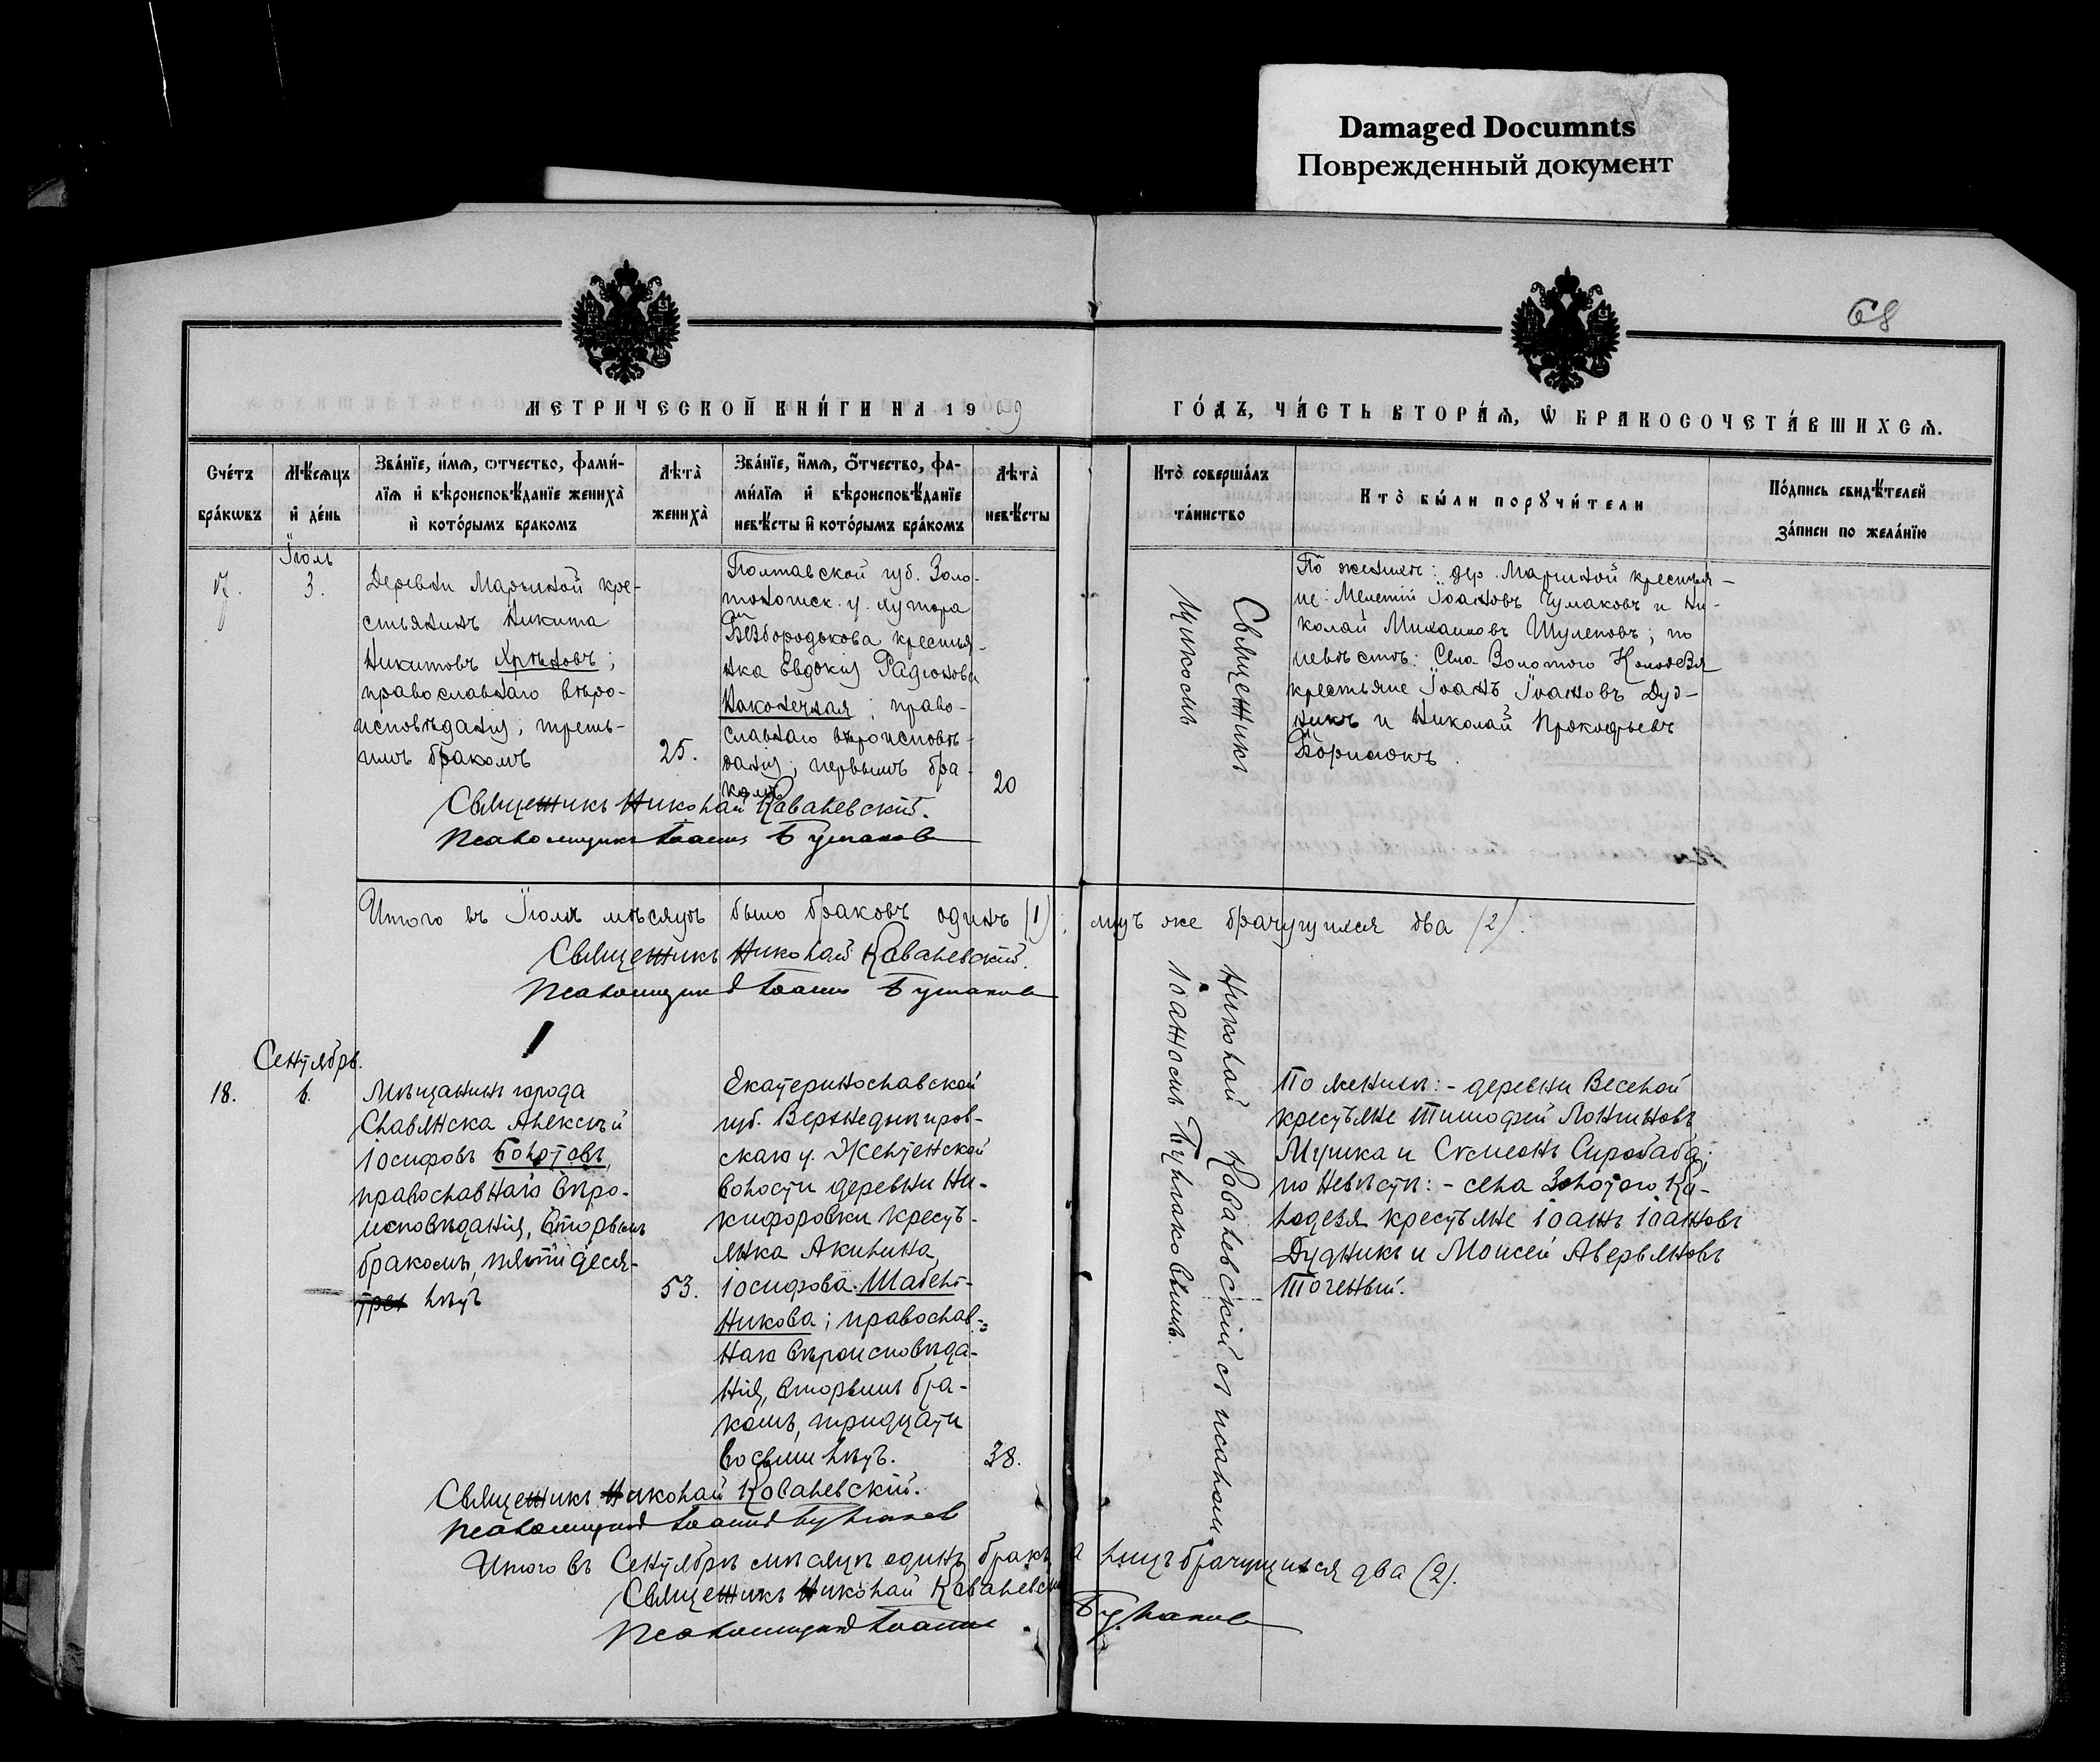 Damaged Documnts
Поврежденный документ
68
МЕТРИЧЕСКОЙ КНИ́ГИ НА 1909
ГО́ДЪ, ЧА́СТЬ ВТОРА́Ѧ, Ѽ БРАКОСОЧЕТА́ВШИХСѦ.
Сче́тъ бра́кѡвъ
Мѣ́сѧцъ и҆ де́нь
Зва́нїе, и҆́мѧ, ѻтчество, фами́-
лїѧ и҆ вѣроисповѣ́данїе жениха̀
и҆ кото́рымъ бракомъ
Лѣта̀ жениха̀
Зва́нїе, и҆́мѧ, ѻ҆́тчество, фа-
ми́лїѧ и҆ вѣроисповѣ́данїе
невѣ́сты и҆ кото́рымъ бра́комъ
Лѣта̀ невѣ́сты
Кто̀ соверша́лъ та́инство
Кто̀ бы́ли порꙋчи́тели
По́дпись свидѣ́телей за́писи по жела́нїю
Іюль
17.
3.
Деревни Марьиной кре-
стьянинъ Никита
Никитовъ Хрѣновъ;
православнаго вѣро-
исповѣданія; треть-
имъ бракомъ
25.
Полтавской губ. Золо-
тоношск. у. хутора
Безбородькова крестья-
нка Евдокія Радіонова
Наконечная; право-
славнаго вѣроисповѣ-
данія; первымъ бра-
комъ
20
По женихѣ: дер. Марьиной крестья-
не: Мелетій Іоановъ Чумаковъ и Ни-
колай Михаиловъ Шулеповъ; по
невѣстѣ: Села Золотого Колодезя
крестьяне Іоанъ Іоановъ Дуд-
никъ и Николай Прокофьевъ
Борисюкъ.
Священникъ Николай Ковалевскій.
Псаломщикъ Іоаннъ
Итого въ Іюлѣ мѣсяцѣ было браковъ одинъ (1); лицъ же брачущихся два (2).
Священникъ Николай Ковалевскій.
Псаломщикъ Іоаннъ
Священникъ Николай Ковалевскій съ псалом-
щикомъ Іоанномъ
Сентябрь.
18.
6.
Мѣщанинъ города
Славянска Алексѣй
Іосифовъ Болотовъ,
православнаго вѣро-
исповѣданія, вторымъ
бракомъ, пятидеся-
трех лѣтъ
53.
Екатеринославской
губ. Верхнеднѣпров-
скаго у. Желтенской
волости деревни Ни-
кифоровки кресть-
янка Акилина
Іосифова Шабель-
никова; православ-
наго вѣроисповѣда-
нія, вторымъ бра-
комъ, тридцати
восьми лѣтъ.
38.
По женихѣ: - деревни Веселой
крестьяне Тимофей Логиновъ
Мушка и Сѵмеонъ Сиробаба;
по невѣстѣ: - села Золотого Ко-
лодезя крестьяне Іоанъ Іоановъ
Дудникъ и Моисей Аверьяновъ
Точеный.
Священникъ Николай Ковалевскій.
Псаломщикъ Іоаннъ
Итого въ Сентябрѣ мѣсяцѣ одинъ бракъ, а лицъ брачущихся два (2).
Священникъ Николай Ковалевскій
Псаломщикъ Іоаннъ